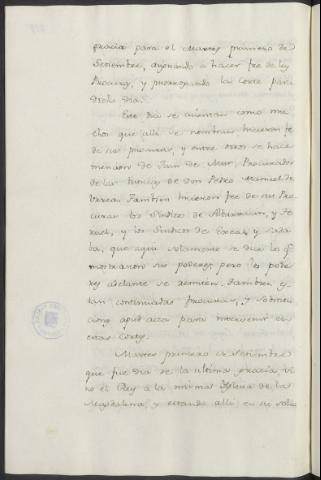 gracia para el Martes primero de
Setiembre, ayonando a hacer fee de los
Procur.s, y prorrogando la Corte para
dicho dia.
Este dia se asientan como mu
chos que alli se nombran hicieron fe
de sus procuras, y entre otros se hace
mencion de Juan de Mur, Procurador
de las de don Pedro Manuel de
Urrea. Tambien hicieron fee de sus Pro
curas los Sindicos de Albarracin, y Te
ruel, y los Sindicos de Exea, y Sada
ba, que aqui solamente se dice lo q.e
mostraron sus poderes, pero los pode
res adelante se Tambien es
tan continuadas procuras, y substitu
ciones apud acta para intervenir en
estas Cortes.
Martes primero de Setiembre
que fue dia de la ultima gracia, vi
no el Rey a la misma Iglesia de la
Magdalena, y estando alli en su solio